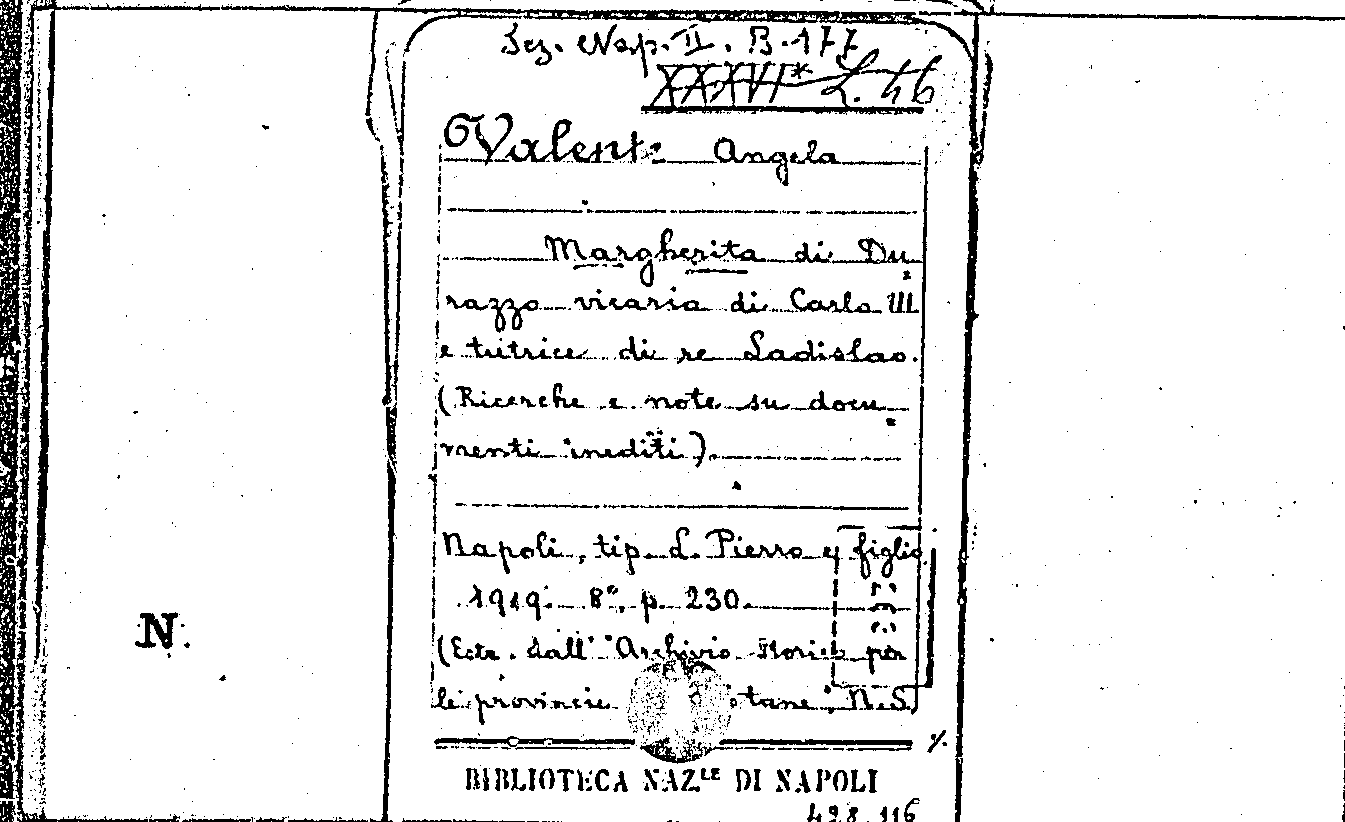 Sez. Nap. II. B. 177
XXXVI* L. 46
Valente Angela
Margherita di Du
razzo vicaria di Carlo III
e tutrice di re Ladislao.
(Ricerche e note su docu
menti inediti).
Napoli, tip. L. Pierro e figlio
1919. 8º, p. 230.
(Estr. dall' "Archivio Storico per
le provincie tane", N.S.
%.
N.
BIBLIOTECA NAZLE DI NAPOLI
428.116